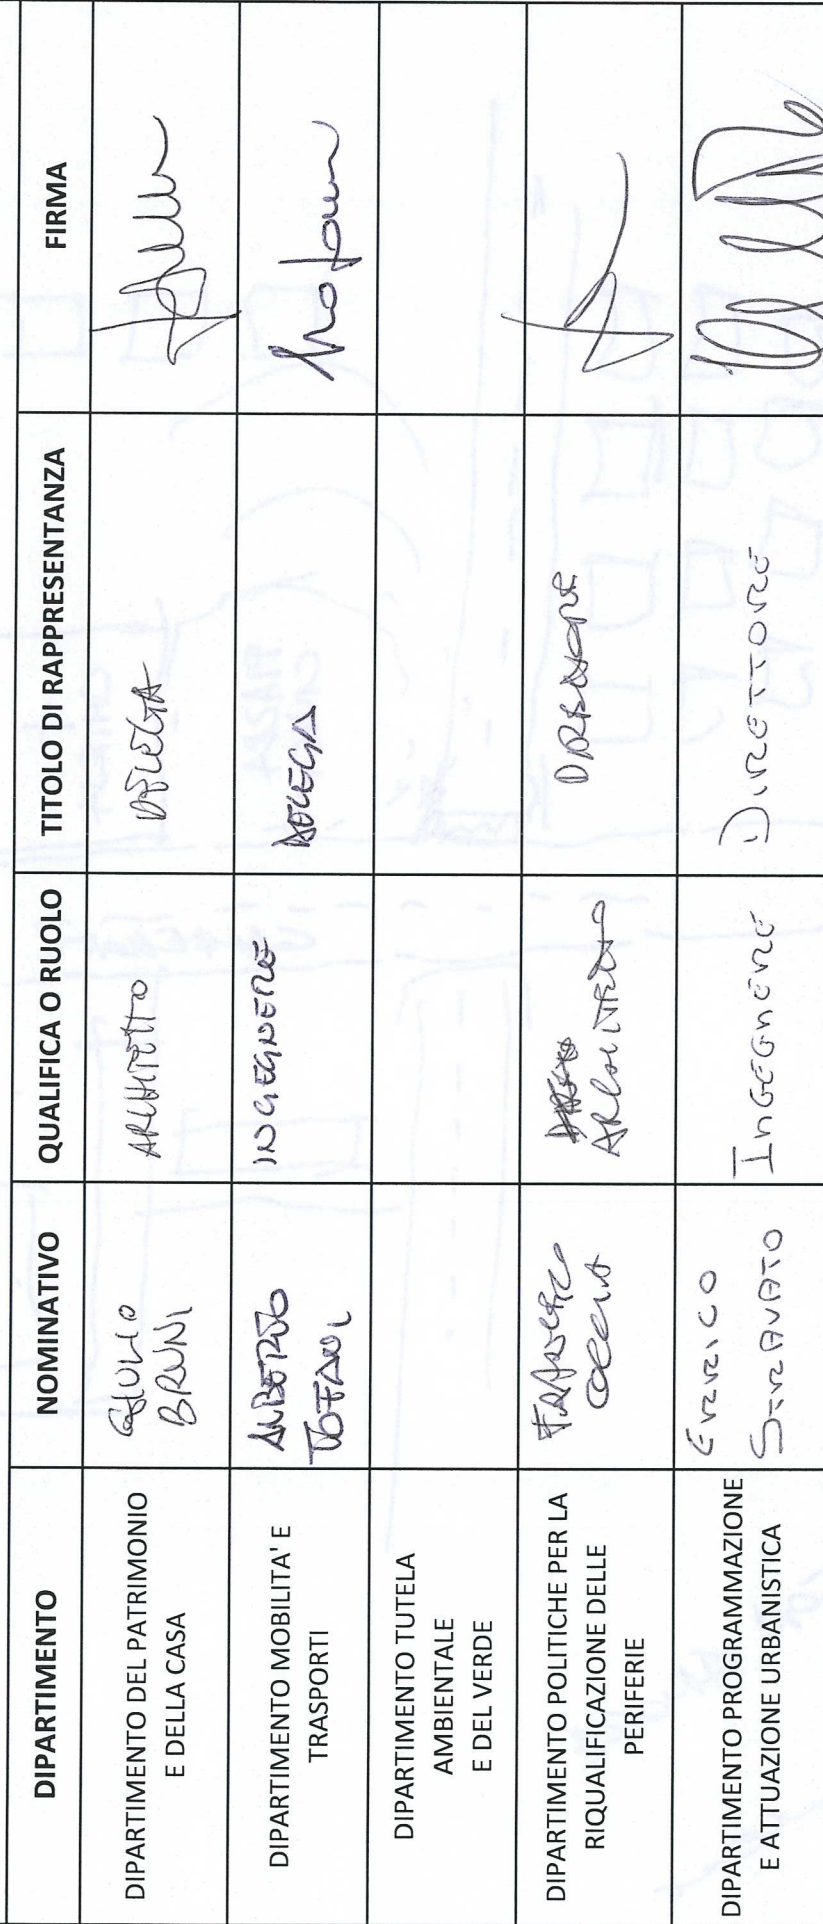 DIPARTIMENTO NOMINATIVO QUALIFICA O RUOLO TITOLO DI RAPPRESENTANZA FIRMA
DIPARTIMENTO DEL PATRIMONIO
E DELLA CASA
GIULIO
BRUNI
ARCHITETTO
DELEGA
DIPARTIMENTO MOBILITA' E
TRASPORTI
ALBERTO
TOFANI
INGEGNERE
DELEGA
DIPARTIMENTO TUTELA
AMBIENTALE
E DEL VERDE
DIPARTIMENTO POLITICHE PER LA
RIQUALIFICAZIONE DELLE
PERIFERIE
ARCHITETTO
DIPARTIMENTO PROGRAMMAZIONE
E ATTUAZIONE URBANISTICA
ENRICO
INGEGNERE
DIRETTORE